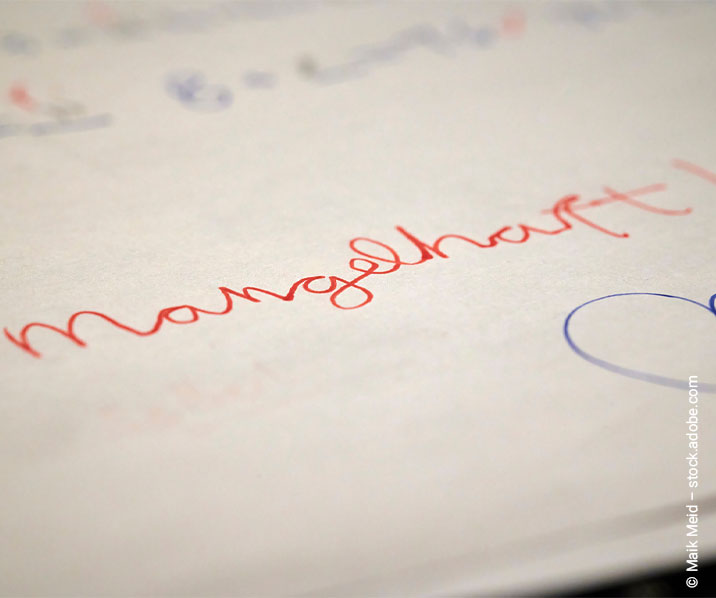 mangelhaft!
© Maik Meid – stock.adobe.com